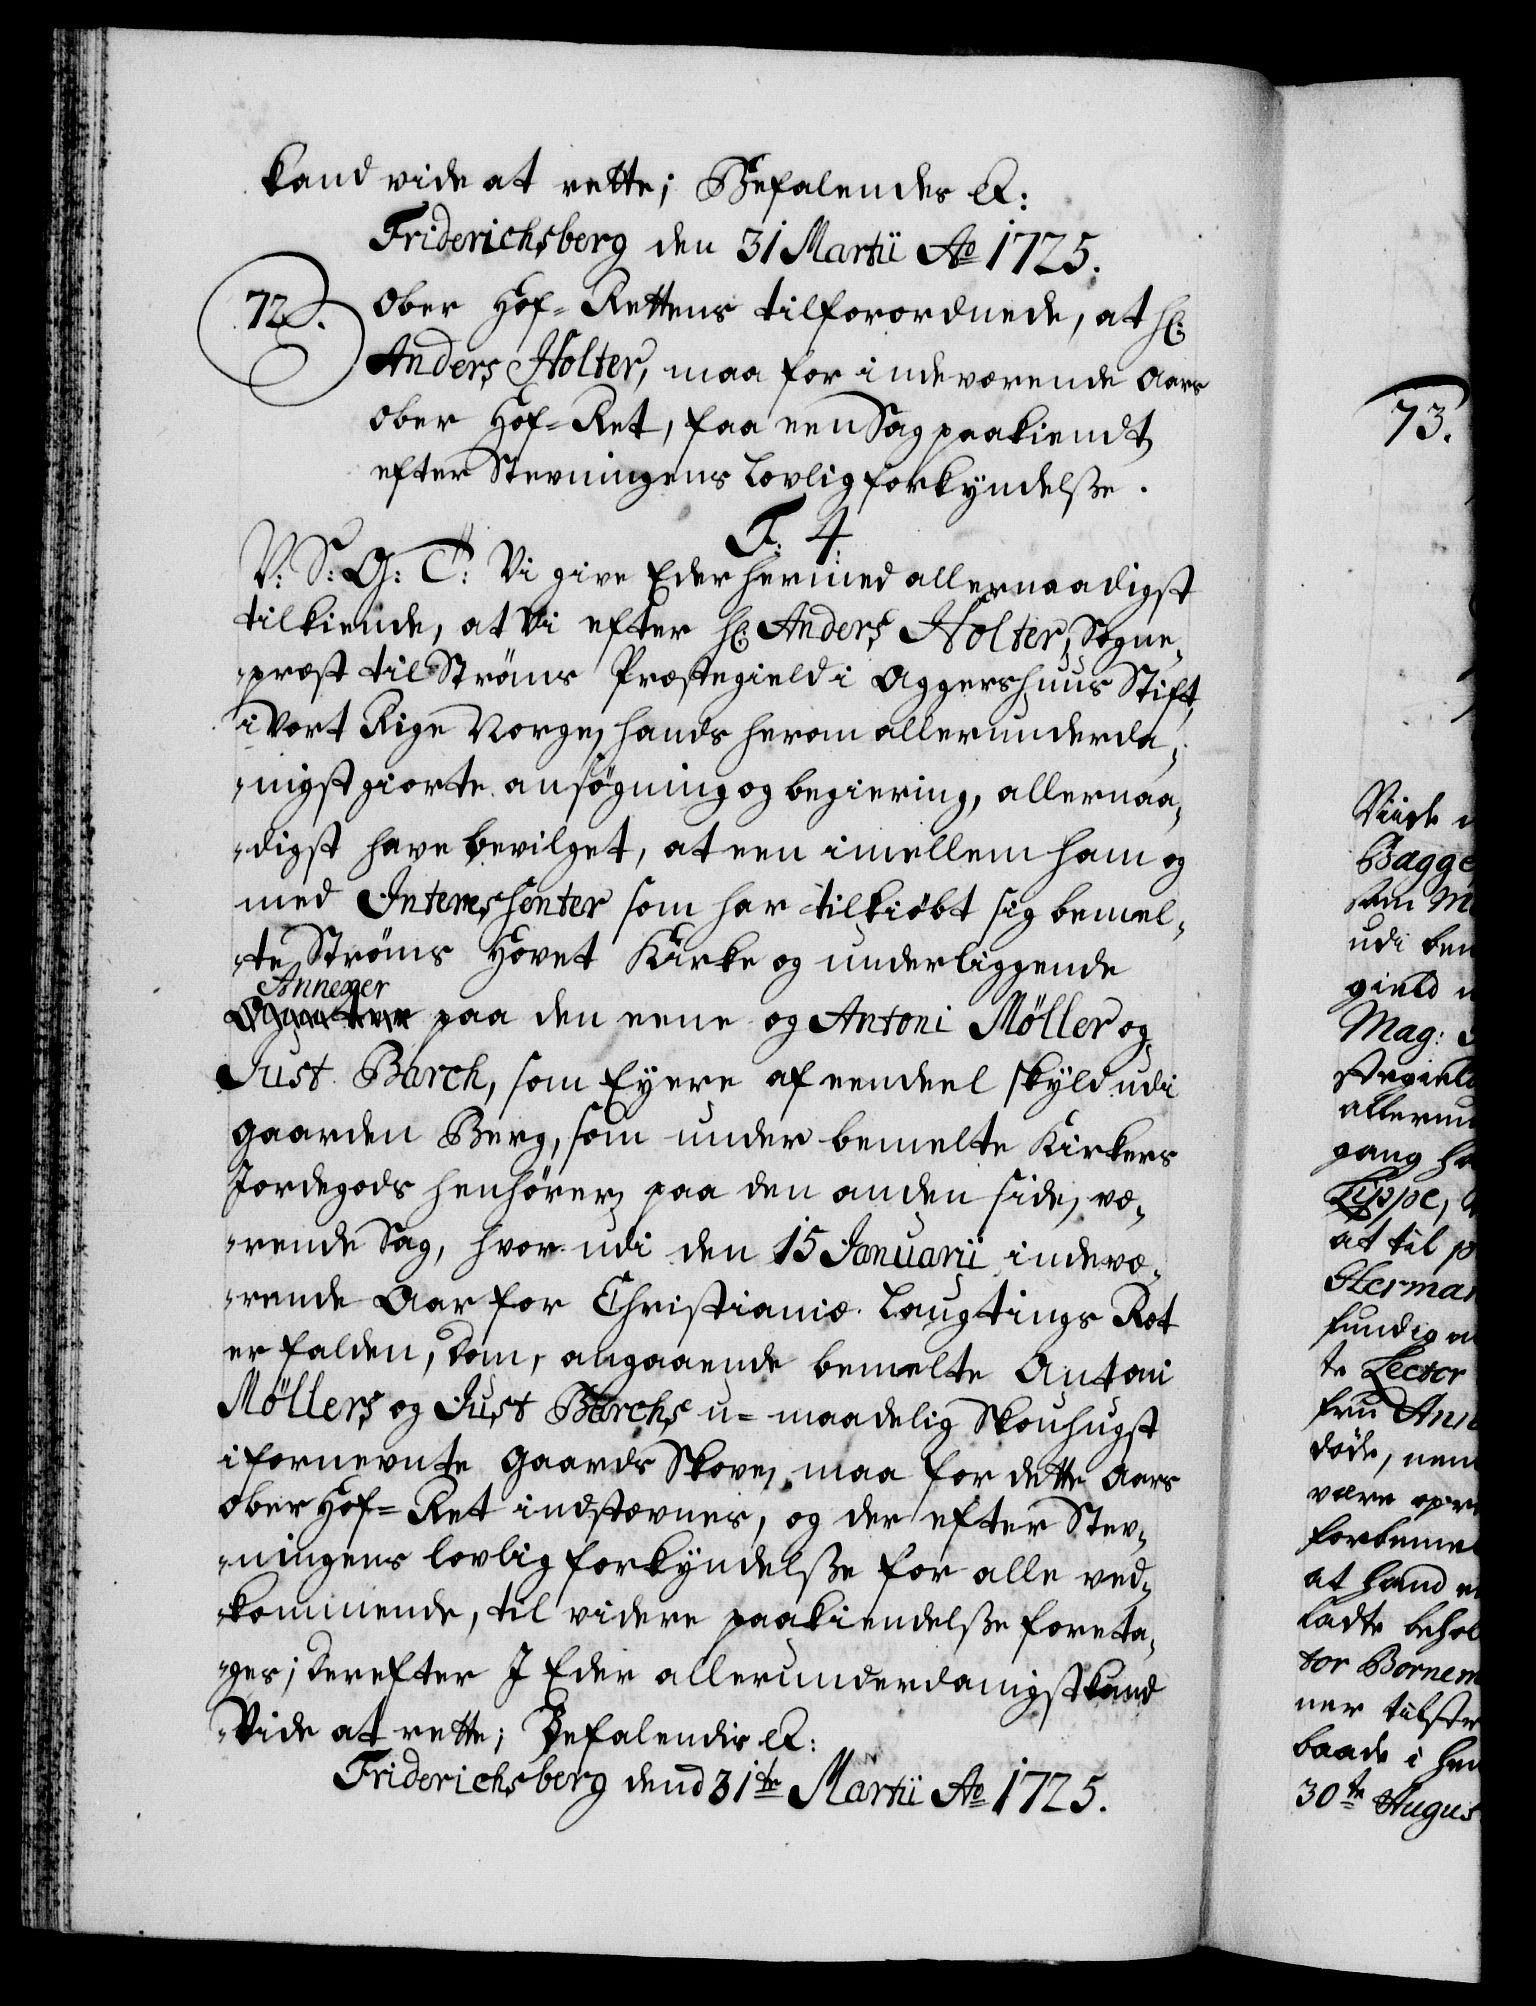 kand vide at rette; Befalendes &:
Friderichsberg den 31 Martii Ao 1725.
72. Ober Hof-Rettens tilforordnede, at Hr:
Anders Holter, maa for indeværende Aars
Ober Hof-Ret, faa een Sag paakiendt
efter Stevningens lovlig forkyndelsse.
F. 4.
V: S: G: T: Vi give Eder hermed allernaadigst
tilkiende, at Vi efter Hr: Anders Holter, Sogne-
-præst til Ströms Præstegield i Aggershuus Stift,
i Vort Rige Norge, hands herom allerunderda-
-nigst giorte ansøgning og begiering, allernaa-
-digst have bevilget, at een imellem ham og
med Interessenter som har tilkiøbt sig bemel-
-te Ströms Hovet Kirke og underliggende
Annexer
paa den eene og Antoni Möller og
Just Barch, som Eyere af eendeel skyld udi
gaarden Berg, som under bemelte Kirkers
Jordegods henhører, paa den anden side, væ-
-rende Sag, hvor udi den 15 Januarii indevæ-
-rende Aar for Christianiæ Laugtings Ret
er falden, Dom, angaaende bemelte Antoni
Möllers og Just Barchs u-maadelig Skouhugst
i fornevnte gaards Skove, maa for dette Aars
Ober Hof-Ret indstævnes, og der efter Stev-
-ningens lovlig forkyndelsse for alle ved-
-kommende, til videre paakiendelsse foreta-
-ges; Derefter I Eder allerunderdanigst kand
Vide at rette; Befalendis &:
Friderichsberg dend 31te Martii Ao 1725.
73.
Viide
Bagge
udi
gield
Mag:
gang
Lippe,
at til
Herman
fundig
te Lector
fru
døde,
være
at hand
ladte
tor Bornem
ner
baade i
30te Augus